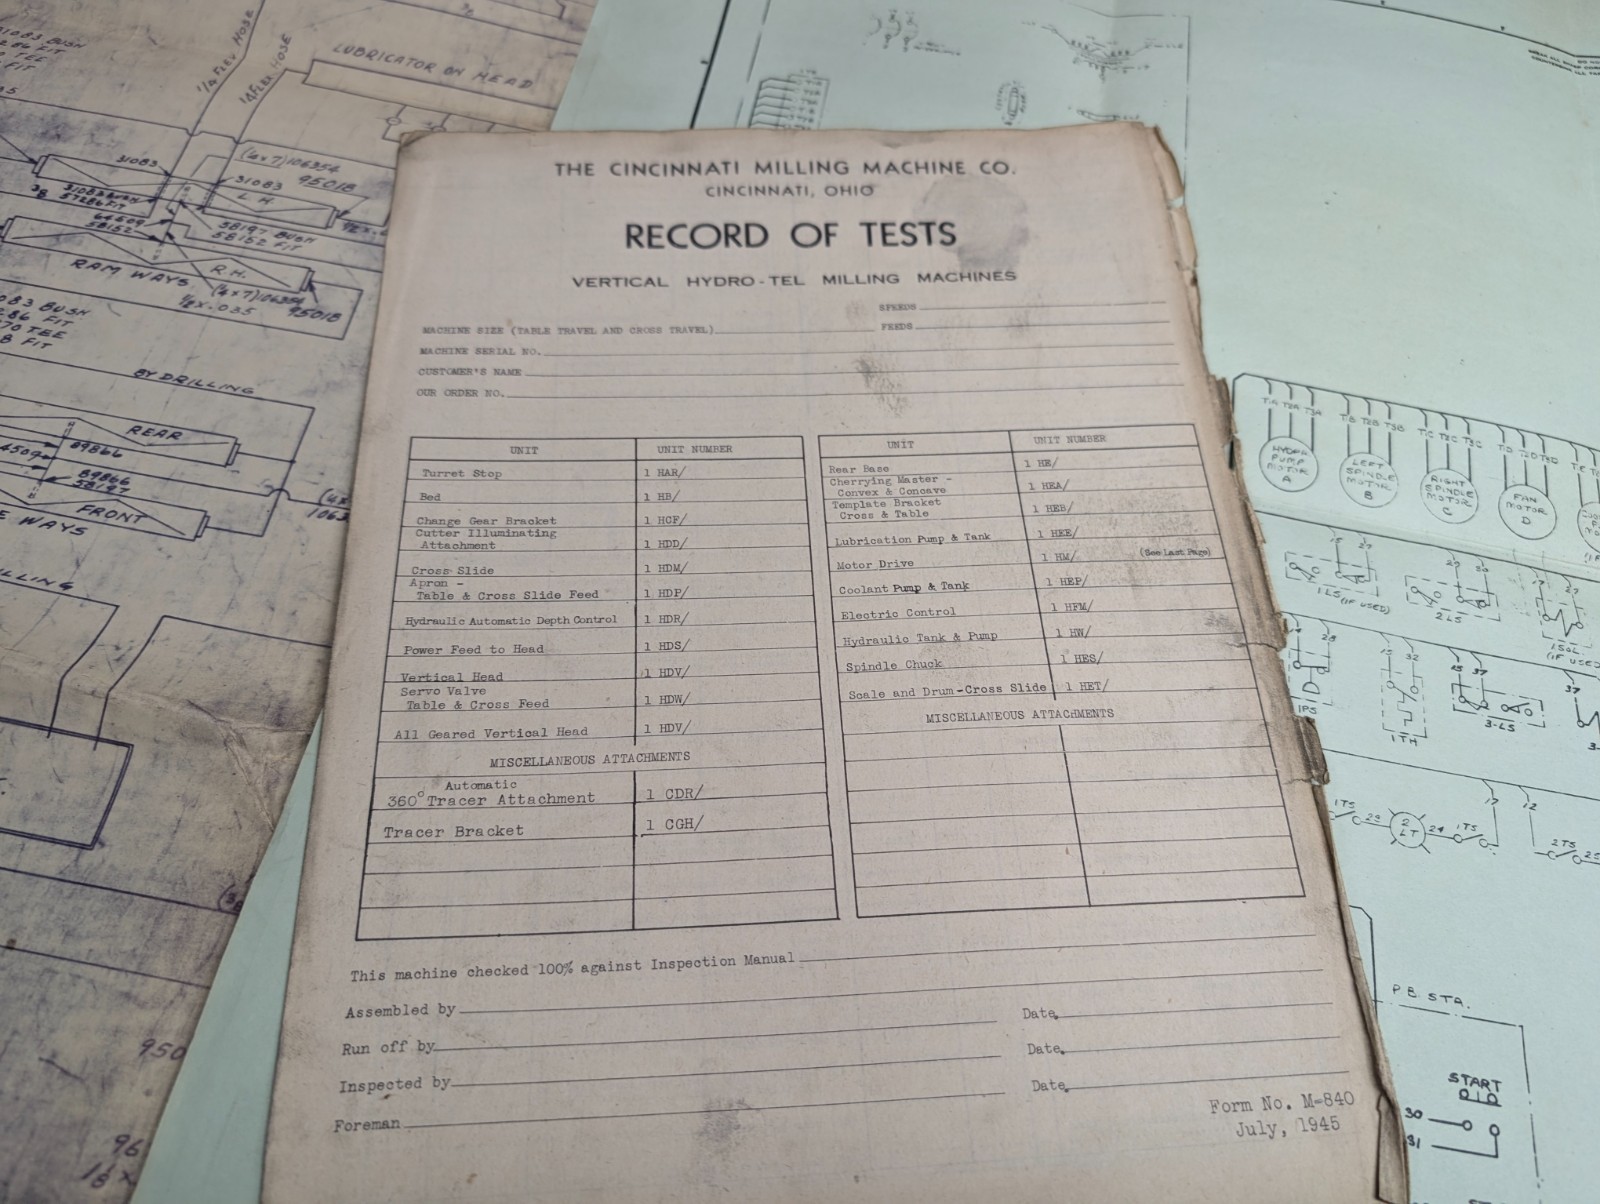 THE CINCINNATI MILLING MACHINE CO.
CINCINNATI, OHIO
RECORD OF TESTS
VERTICAL HYDRO-TEL MILLING MACHINES
SPEEDS
MACHINE SIZE (TABLE TRAVEL AND CROSS TRAVEL)
FEEDS
MACHINE SERIAL NO.
CUSTOMER'S NAME
OUR ORDER NO.
UNIT UNIT NUMBER
Turret Stop 1 HAR/
Bed 1 HB/
Change Gear Bracket 1 HCF/
Cutter Illuminating
Attachment 1 HDD/
Cross Slide 1 HDM/
Apron -
Table & Cross Slide Feed 1 HDP/
Hydraulic Automatic Depth Control 1 HDR/
Power Feed to Head 1 HDS/
Vertical Head 1 HDV/
Servo Valve
Table & Cross Feed 1 HDW/
All Geared Vertical Head 1 HDV/
MISCELLANEOUS ATTACHMENTS
Automatic
360° Tracer Attachment 1 CDR/
Tracer Bracket 1 CGH/
UNIT UNIT NUMBER
Rear Base 1 HE/
Cherrying Master -
Convex & Concave 1 HEA/
Template Bracket
Cross & Table 1 HEB/
Lubrication Pump & Tank 1 HEE/
Motor Drive 1 HM/ (See Last Page)
Coolant Pump & Tank 1 HEP/
Electric Control 1 HFM/
Hydraulic Tank & Pump 1 HW/
Spindle Chuck 1 HES/
Scale and Drum-Cross Slide 1 HET/
MISCELLANEOUS ATTACHMENTS
This machine checked 100% against Inspection Manual
Assembled by Date
Run off by Date
Inspected by Date
Foreman
Form No. M-840
July, 1945
1/4 FLEX HOSE
1/4 FLEX HOSE
LUBRICATOR ON HEAD
31083
(4x7)106354
95018
31083
L H
57286 FIT
64509
58152
58197 BUSH
58152 FIT
RAM WAYS
R.H.
(4x7)106354
1/2 x .035
95018
BY DRILLING
REAR
89866
89866
58197
FRONT
WAYS
950
96
HYDRA
PUMP
MOTOR
A
LEFT
SPINDLE
MOTOR
B
RIGHT
SPINDLE
MOTOR
C
FAN
MOTOR
D
T1A T2A T3A
T1B T2B T3B
T1C T2C T3C
T1D T2D T3D
1LS (IF USED)
2LS
1SOL.
(IF USED)
1PS
1TH
3-LS
1TS
23
2
LT
24
1TS
17
12
2TS
25
P.B. STA.
START
30
31